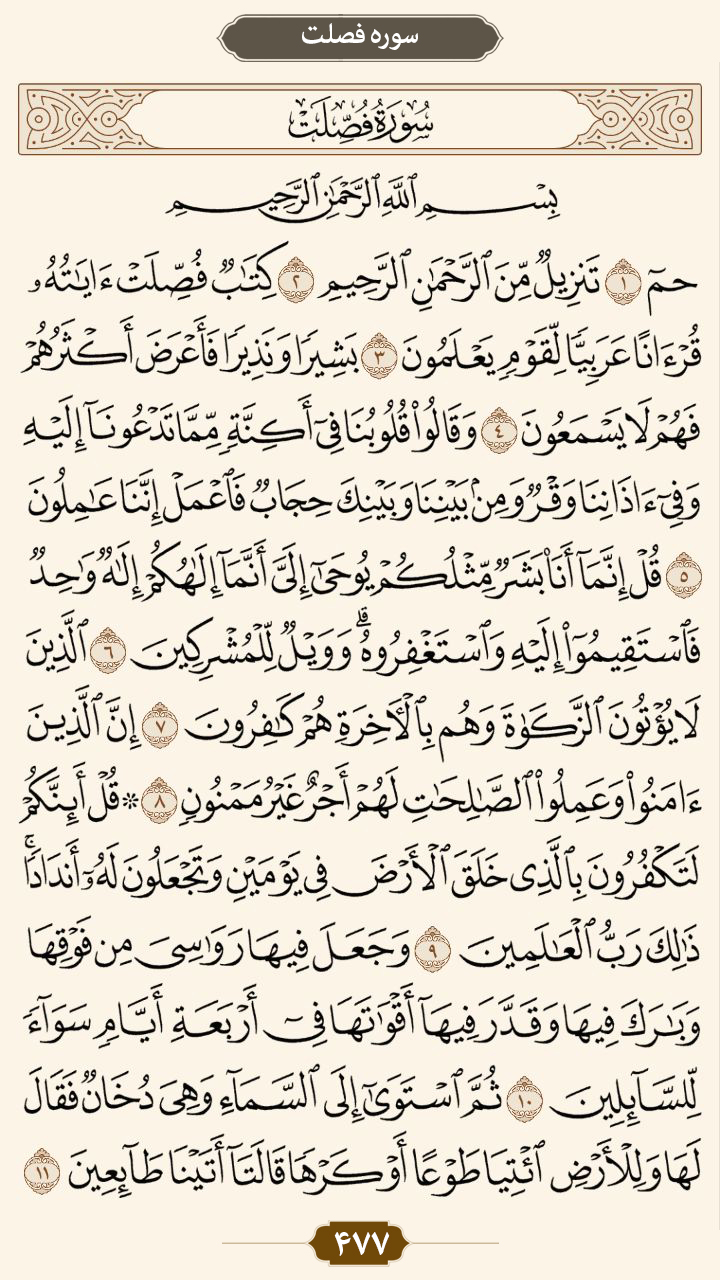 سوره فصلت
سُورَةُ فُصِّلَتْ
بِسْمِ ٱللَّهِ ٱلرَّحْمَٰنِ ٱلرَّحِيمِ
حمٓ ١ تَنزِيلٌ مِّنَ ٱلرَّحْمَٰنِ ٱلرَّحِيمِ ٢ كِتَٰبٌ فُصِّلَتْ ءَايَٰتُهُۥ
قُرْءَانًا عَرَبِيًّا لِّقَوْمٍ يَعْلَمُونَ ٣ بَشِيرًا وَنَذِيرًا فَأَعْرَضَ أَكْثَرُهُمْ
فَهُمْ لَا يَسْمَعُونَ ٤ وَقَالُوا۟ قُلُوبُنَا فِىٓ أَكِنَّةٍ مِّمَّا تَدْعُونَآ إِلَيْهِ
وَفِىٓ ءَاذَانِنَا وَقْرٌ وَمِنۢ بَيْنِنَا وَبَيْنِكَ حِجَابٌ فَٱعْمَلْ إِنَّنَا عَٰمِلُونَ
٥ قُلْ إِنَّمَآ أَنَا۠ بَشَرٌ مِّثْلُكُمْ يُوحَىٰٓ إِلَىَّ أَنَّمَآ إِلَٰهُكُمْ إِلَٰهٌ وَٰحِدٌ
فَٱسْتَقِيمُوٓا۟ إِلَيْهِ وَٱسْتَغْفِرُوهُ ۗ وَوَيْلٌ لِّلْمُشْرِكِينَ ٦ ٱلَّذِينَ
لَا يُؤْتُونَ ٱلزَّكَوٰةَ وَهُم بِٱلْءَاخِرَةِ هُمْ كَٰفِرُونَ ٧ إِنَّ ٱلَّذِينَ
ءَامَنُوا۟ وَعَمِلُوا۟ ٱلصَّٰلِحَٰتِ لَهُمْ أَجْرٌ غَيْرُ مَمْنُونٍ ٨ * قُلْ أَئِنَّكُمْ
لَتَكْفُرُونَ بِٱلَّذِى خَلَقَ ٱلْأَرْضَ فِى يَوْمَيْنِ وَتَجْعَلُونَ لَهُۥٓ أَندَادًا ۚ
ذَٰلِكَ رَبُّ ٱلْعَٰلَمِينَ ٩ وَجَعَلَ فِيهَا رَوَٰسِىَ مِن فَوْقِهَا
وَبَٰرَكَ فِيهَا وَقَدَّرَ فِيهَآ أَقْوَٰتَهَا فِىٓ أَرْبَعَةِ أَيَّامٍ سَوَآءً
لِّلسَّآئِلِينَ ١٠ ثُمَّ ٱسْتَوَىٰٓ إِلَى ٱلسَّمَآءِ وَهِىَ دُخَانٌ فَقَالَ
لَهَا وَلِلْأَرْضِ ٱئْتِيَا طَوْعًا أَوْ كَرْهًا قَالَتَآ أَتَيْنَا طَآئِعِينَ ١١
۴۷۷